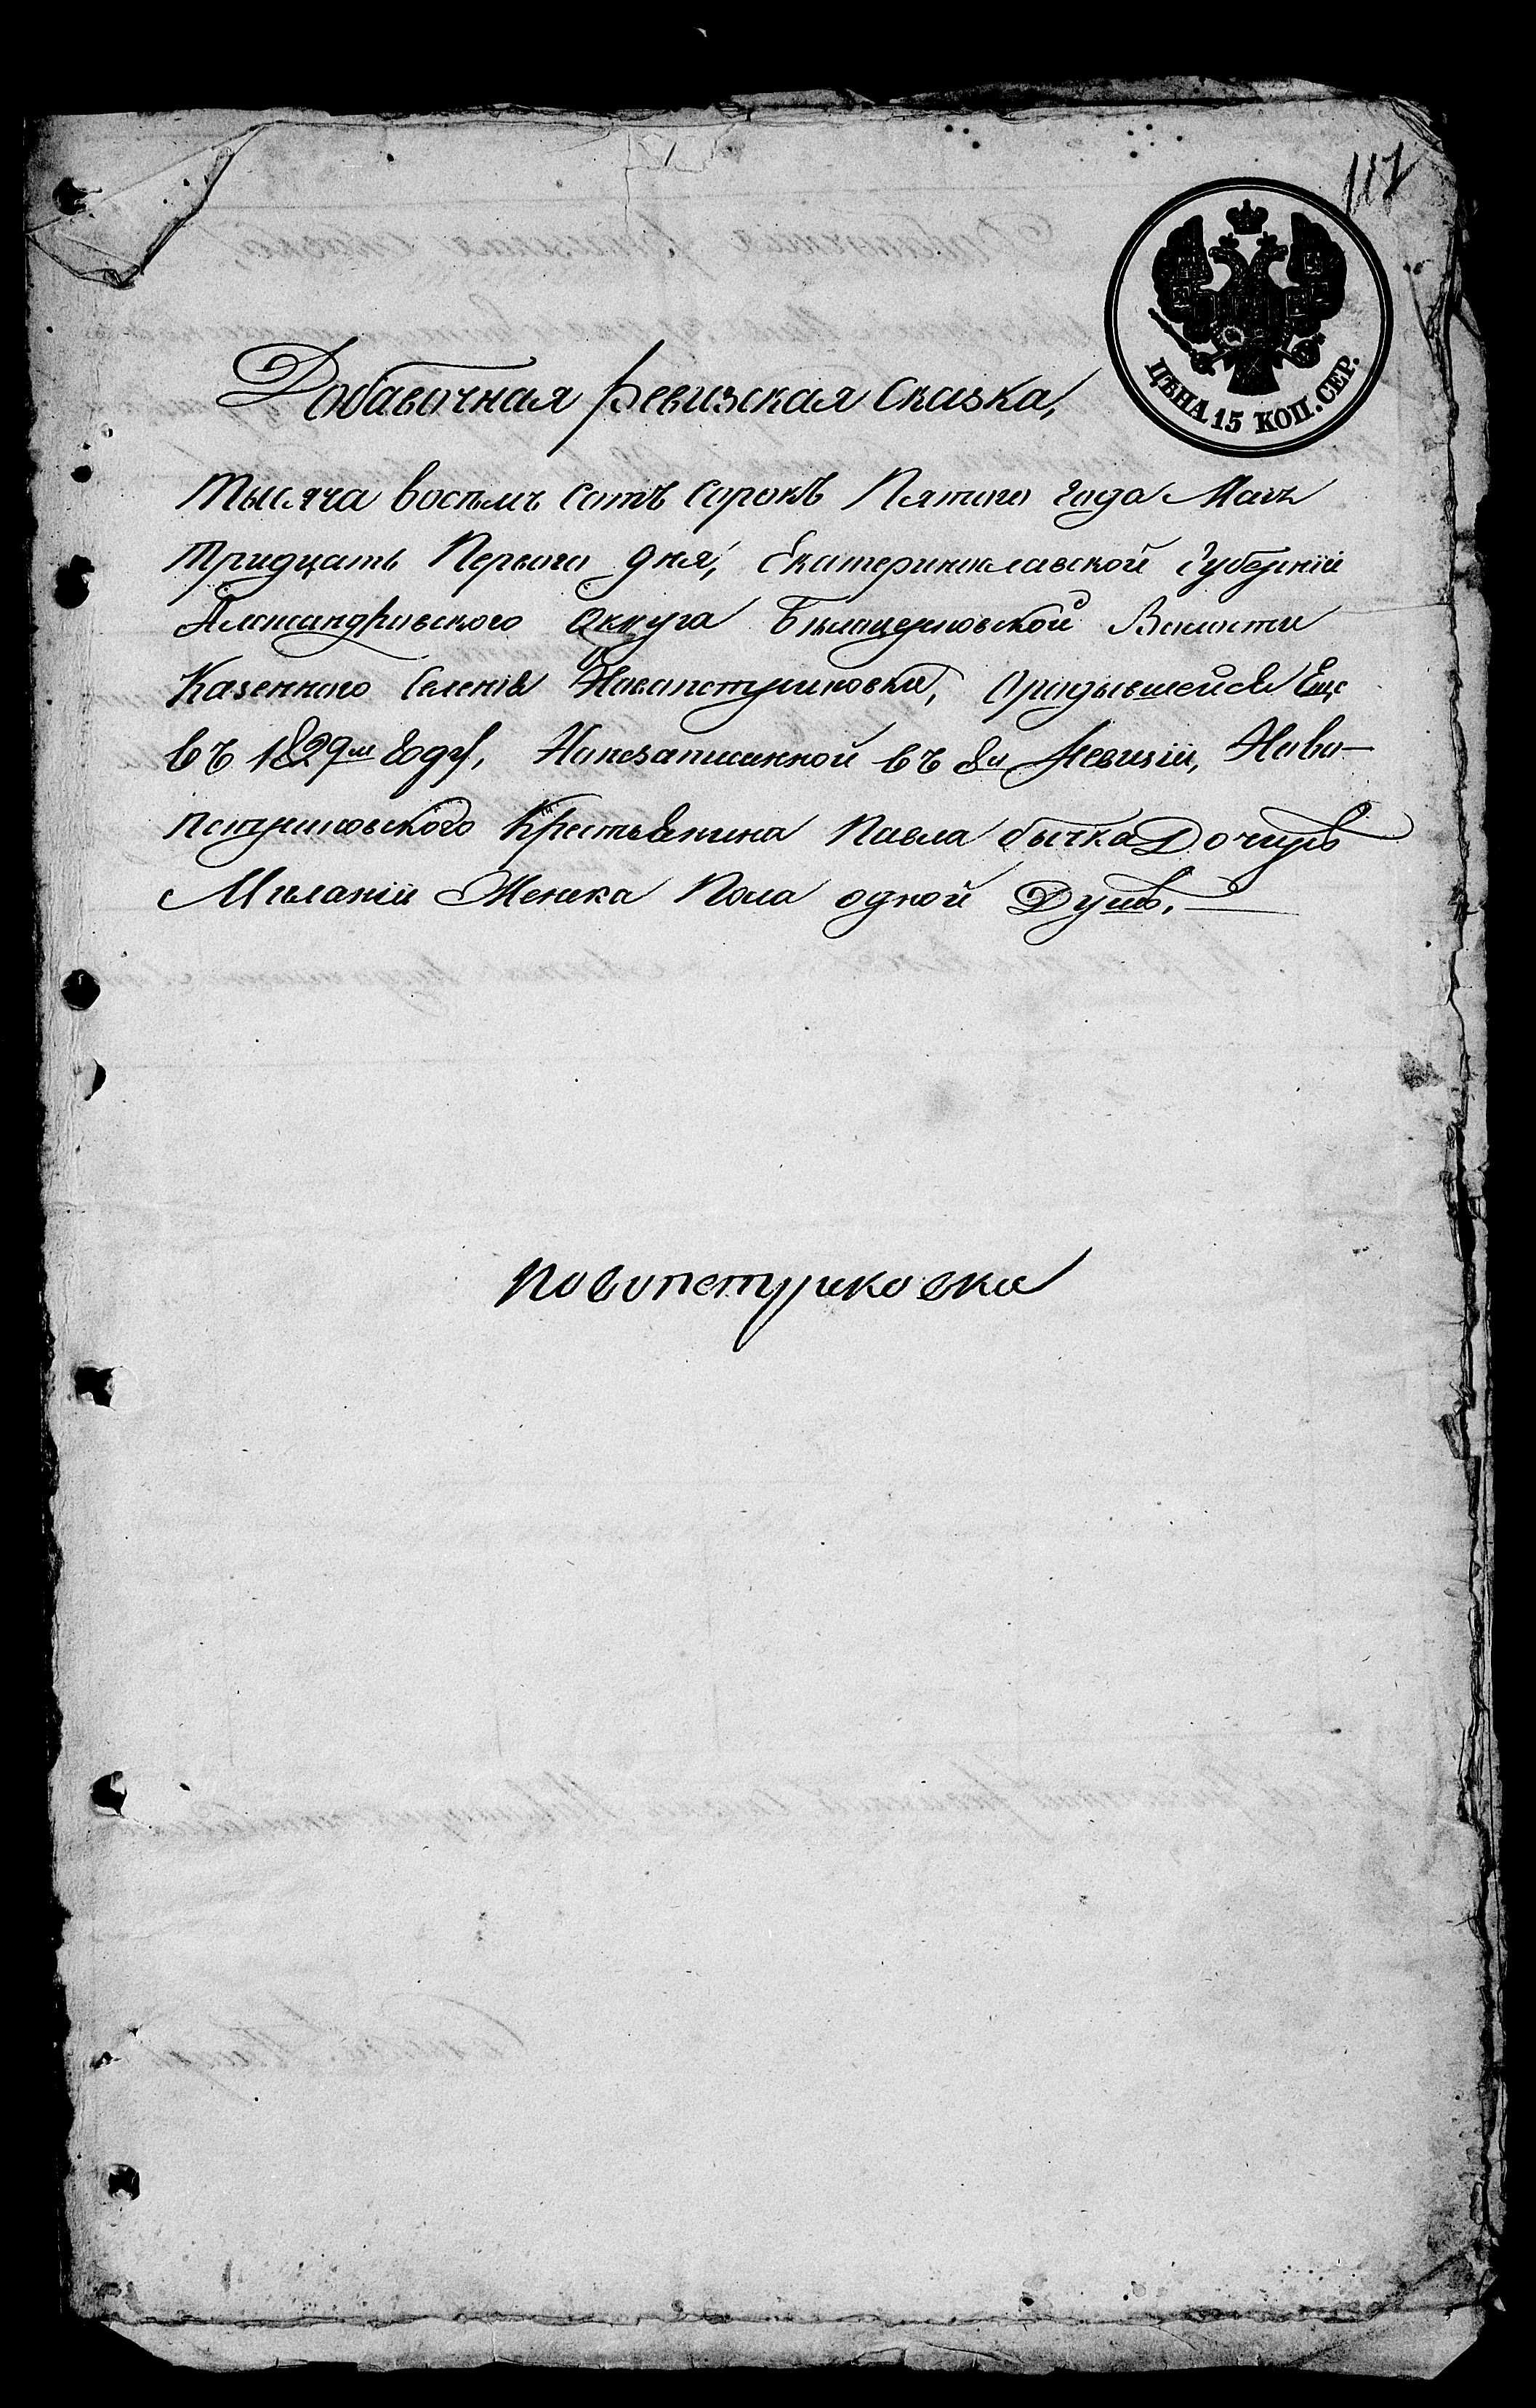 117
ЦѢНА 15 КОП. СЕР.
Добавочная Ревизская Сказка,
Тысяча восемъ сотъ сорокъ Пятого года Мая
тридцать Перваго дня, Екатеринославской Губерніи
Александровского Округа Бѣлоцерковской Волости
Казенного Селенія Новопетриковки, О родившейся Еще
въ 1829м Году, Но незаписанной въ 8ю Ревизію, Ново-
петриковского Крестьянина Павла бычка Дочирѣ
Миланіи Женска Пола одной Душѣ.
Новопетриковки